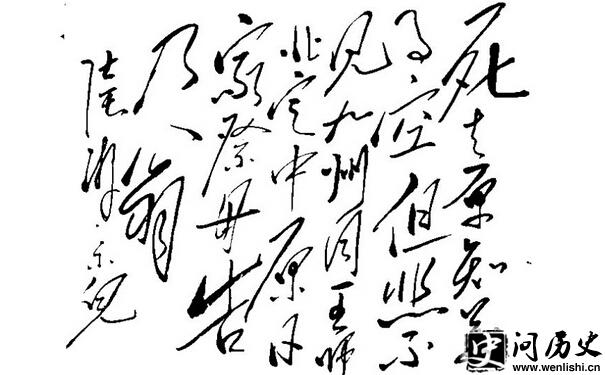 死去原知萬
事空但悲不
见九州同王师
北定中原日
家祭毋告
乃翁
陸游示兒
史 问历史
www.wenlishi.cn